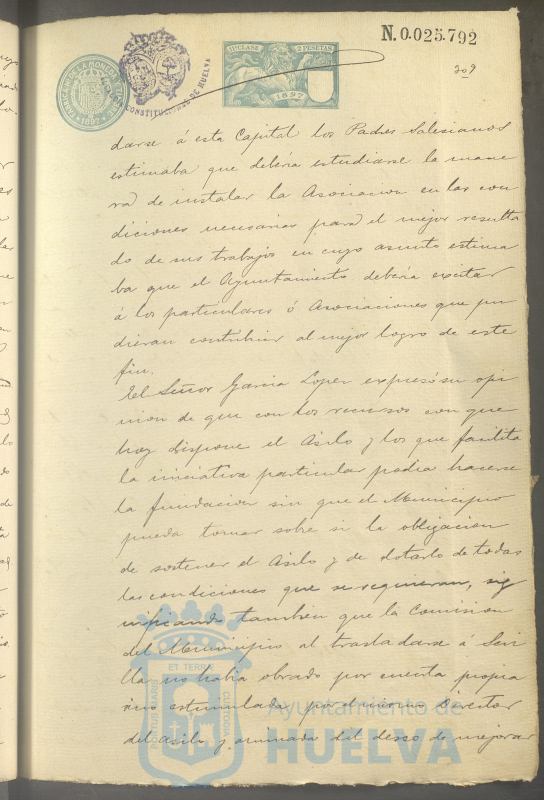 N.0.025.792
11ª CLASE 2 PESETAS
1897
209
darse á esta Capital los Padres Salesianos
estimaba que debería estudiarse la mane
ra de instalar la Asociacion en las con
diciones necesarias para el mejor resulta
do de sus trabajos en cuyo asunto estima
ba que el Ayuntamiento debería excitar
á los particulares ó Asociaciones que pu
dieran contribuir al mejor logro de este
fin.
El Señor García Lopez expresó su opi
nion de que con los recursos con que
hoy dispone el Asilo y los que facilita
la iniciativa particular podia hacerse
la fundacion sin que el Municipio
pueda tomar sobre si la obligacion
de sostener el Asilo y de dotarlo de todas
las condiciones que se requieran, sig
nificando tambien que la Comision
del Municipio al trasladarse á Sevi
lla no habia obrado por cuenta propia
sino estimulada por el mismo Director
del Asilo y animada del deseo de mejorar
ET TERRÆ
PORTUS MARIS
CUSTODIA
Ayuntamiento de
HUELVA